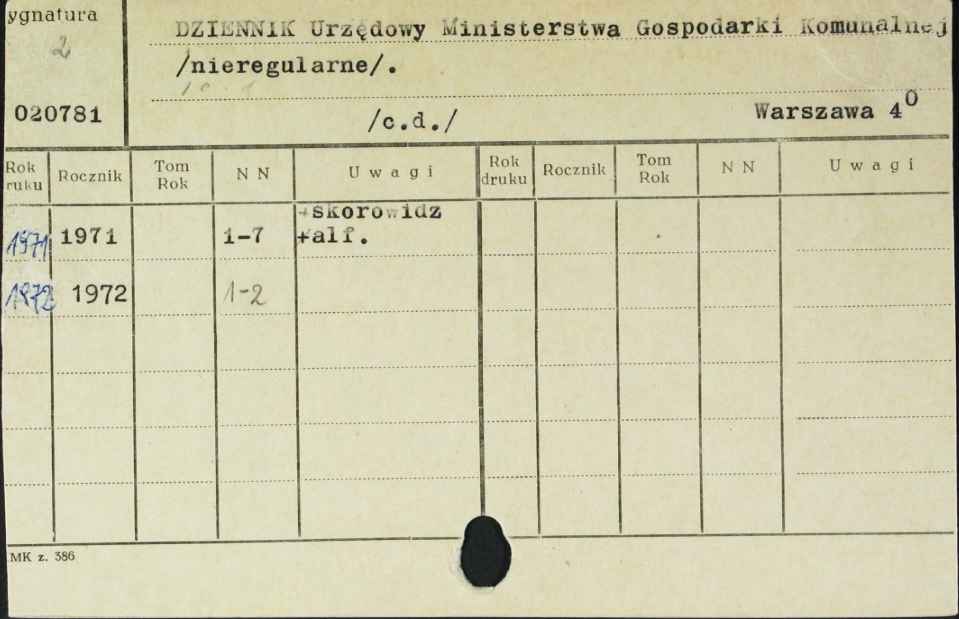 ygnatura
2
020781
DZIENNIK Urzędowy Ministerstwa Gospodarki Komunalnej
/nieregularne/.
/c.d./ Warszawa 4⁰
Rok ruku Rocznik Tom Rok NN Uwagi Rok druku Rocznik Tom Rok NN Uwagi
+skorowidz
1971 1971 1-7 +alf.
1972 1972 1-2
MK z. 386